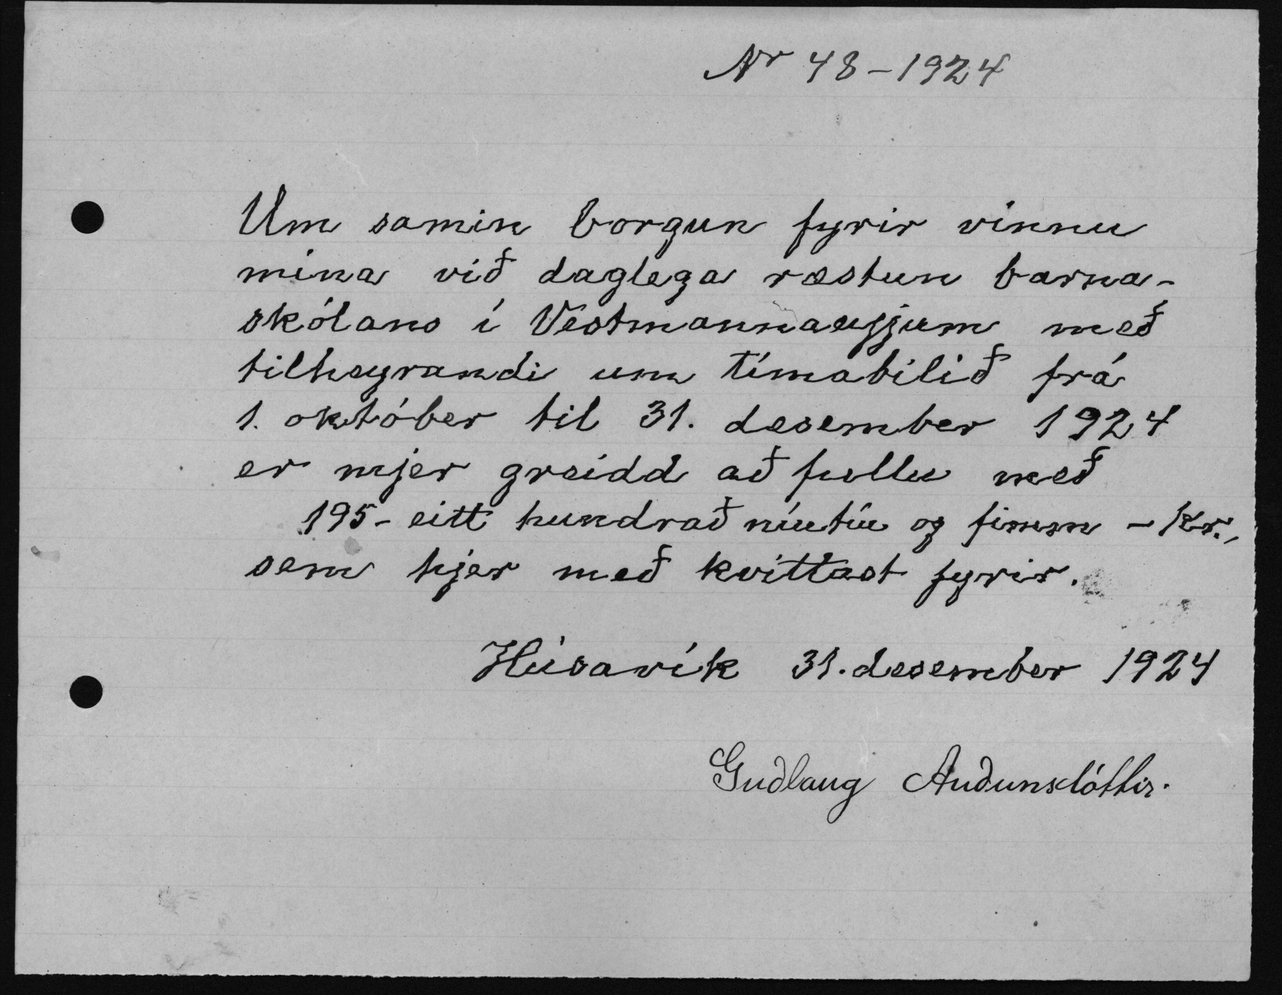 Nr 48-1924
Um samin borgun fyrir vinnu
mína við daglega ræstun barna-
skólans í Vestmannaeyjum með
tilheyrandi um tímabilið frá
1. október til 31. desember 1924
er mjer greidd að fullu með
195- eitt hundrað níutíu og fimm - Kr.,
sem hjer með kvittast fyrir.
Húsavík 31. desember 1924
Guðlaug Auðunsdóttir.